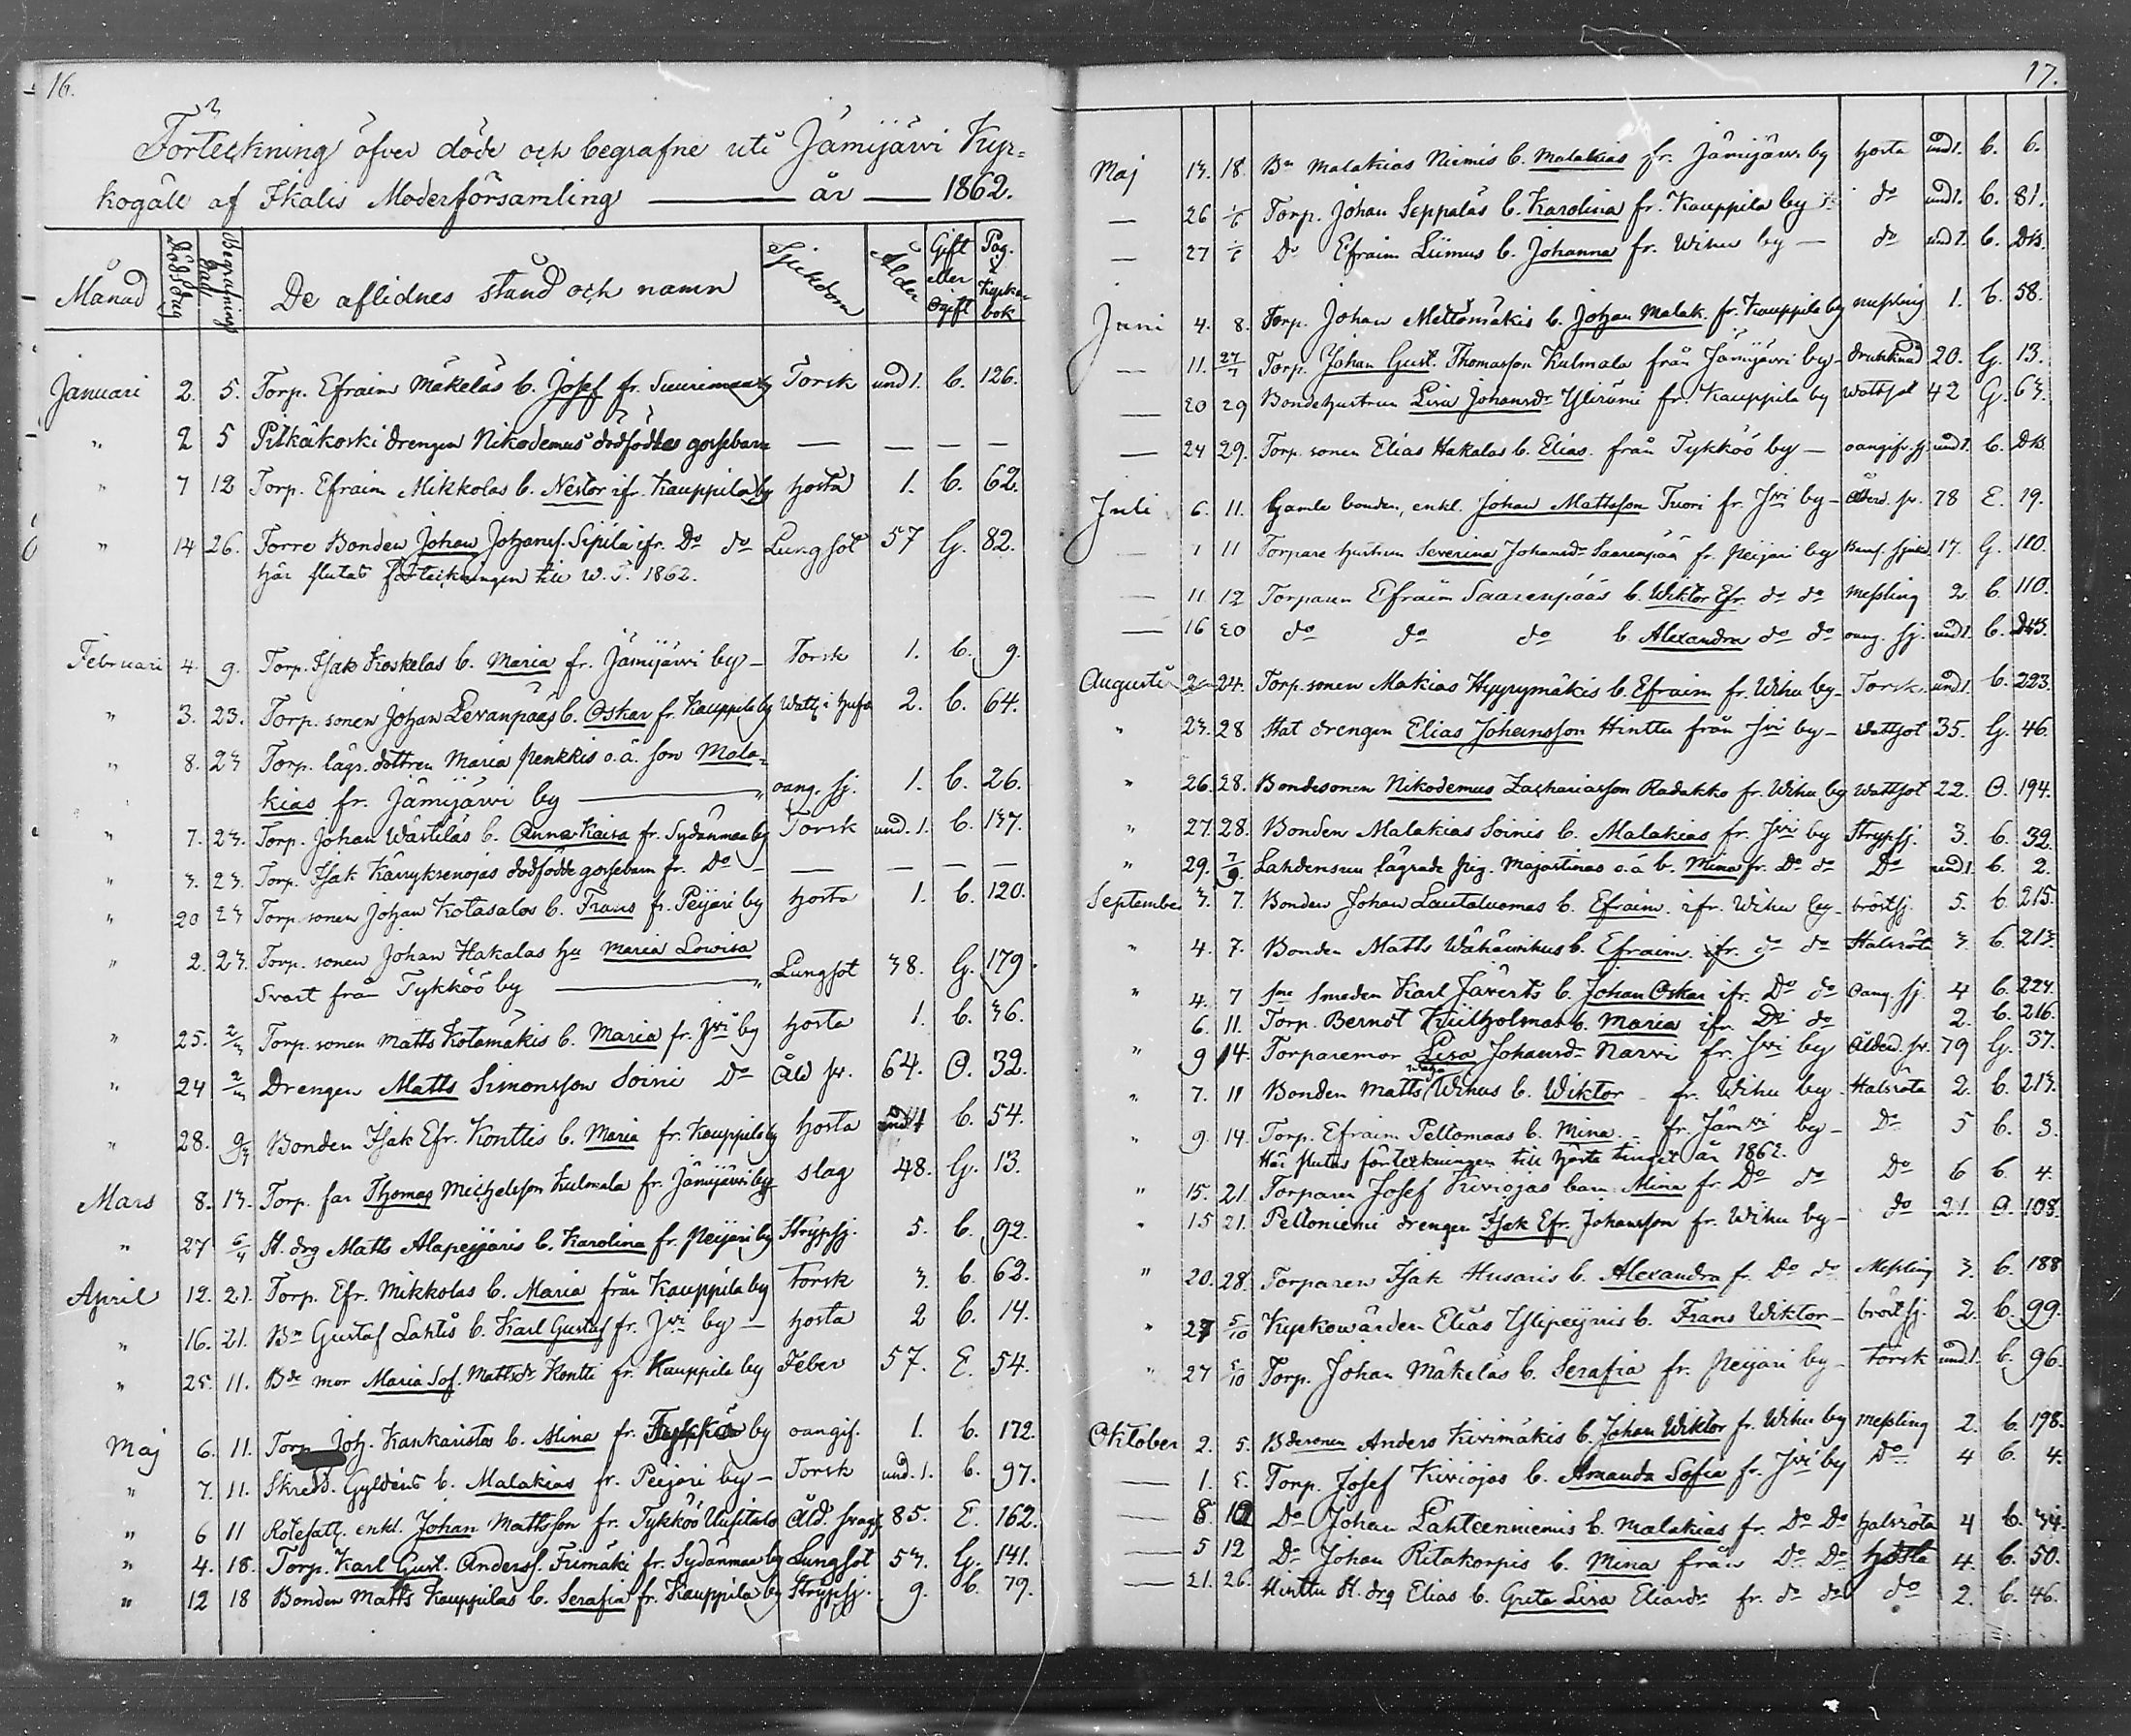 16.
Förteckning öfver döde och begrafne uti Jämijärvi Kyr-
kogäll af Ikalis Moderförsamling — år — 1862.
Månad Dödsdag Begrafningsdag De aflidnes stånd och namn Sjukdom Ålder Gift eller Ogift Pag. i Kyrkobok
Januari 2. 5. Torp. Efraim Mäkeläs b. Josef fr. Suurimaa by Torsk und 1. b. 126.
" 2 5 Pitkäkoski drengen Nikodemus dödfödde gossebarn — — — —
" 7 12 Torp. Efraim Mikkolas b. Nestor ifr. Kauppila by Hosta 1. b. 62.
" 14 26. Torre Bonden Johan Johanss. Sipilä ifr. Do do Lungsot 57 G. 82.
Här slutas förteckningen till W. T. 1862.
Februari 4. 9. Torp. Isak Koskelas b. Maria fr. Jämijärvi by — Torsk 1. b. 9.
" 3. 23. Torp. sonen Johan Levanpääs b. Oskar fr. Kauppila by Watt. i hufv. 2. b. 64.
" 8. 23 Torp. lägr. dottren Maria Penkkis o.ä. son Mala-
kias fr. Jämijärvi by — oang. sj. 1. b. 26.
" 7. 23. Torp. Johan Wästiläs b. Anna Kaisa fr. Sydänmaa by Torsk und. 1. b. 137.
" 3. 23. Torp. Isak Kärryksenojas dödfödde gossebarn fr. Do — — — —
" 20 23 Torp. sonen Johan Kotasalos b. Frans fr. Peijari by Hosta 1. b. 120.
" 2. 23. Torp. sonen Johan Hakalas hu Maria Lowisa
Svart från Tykköö by — Lungsot 38. G. 179.
" 25. 2/3 Torp. sonen Matts Kotamäkis b. Maria fr. Jvi by Hosta 1. b. 36.
" 24 2/3 Drengen Matts Simonsson Soini Do Åld sv. 64. O. 32.
" 28. 9/3 Bonden Isak Efr. Konttis b. Maria fr. Kauppila by Hosta und 1 b. 54.
Mars 8. 13. Torp. far Thomas Michelsson Kulmala fr. Jämijärvi by slag 48. G. 13.
" 27 6/4 St. drg Matts Alapeijaris b. Karolina fr. Peijari by Strypsj. 5. b. 92.
April 12. 21. Torp. Efr. Mikkolas b. Maria från Kauppila by Torsk 3. b. 62.
" 16. 21. Bn Gustaf Lahtis b. Karl Gustaf fr. Jvi by — Hosta 2 b. 14.
" 25. 11. Bde mor Maria Sof. Mattsdr Kontti fr. Kauppila by Feber 57. E. 54.
Maj 6. 11. Torp. Joh. Kankaristos b. Alina fr. Tykköö by oangif. 1. b. 172.
" 7. 11. Skredd. Gyldéns b. Malakias fr. Peijari by — Torsk und. 1. b. 97.
" 6 11 Rotefatt. enkl. Johan Mattsson fr. Tykköö Uusitalo Åld. svagh. 85. E. 162.
" 4. 18. Torp. Karl Gust. Anderss. Frimäki fr. Sydänmaa by Lungsot 53. G. 141.
" 12 18 Bonden Matts Kauppilas b. Serafia fr. Kauppila by Strypsj. 9. b. 79.
17.
Maj 13. 18. Bn Malakias Niemis b. Malakias fr. Jämijärvi by Hosta und 1. b. 6.
— 26 1/6 Torp. Johan Seppäläs b. Karolina fr. Kauppila by do und 1. b. 81.
— 27 1/6 Do Efraim Liimus b. Johanna fr. Wihu by — do und 1. b. Dls.
Juni 4. 8. Torp. Johan Mettomäkis b. Johan Malak. fr. Kauppila by messling 1. b. 58.
— 11. Torp. Johan Gust. Thomasson Kulmala från Jämijärvi by — drunknad 20. G. 13.
— 20 29 Bondehustrun Lisa Johansdr Yliruni fr. Kauppila by Wattsot 42 G. 63.
— 24 29. Torp. sonen Elias Hakalas b. Elias från Tykköö by — oangif. sj. und 1. b. Dls.
Juli 6. 11. Gamle bonden, enkl. Johan Mattsson Tuori fr. Jvi by — Ålderd. sv. 78 E. 19.
— 7 11 Torpare hustrun Severina Johansdr Saarenpää fr. Peijari by Barns. sjukd. 17. G. 110.
— 11 12 Torparen Efraim Saarenpääs b. Wiktor Efr. do do messling 2 b. 110.
— 16 20 do do do b Alexandra do do oang. sj. und 1. b. Dls.
Augusti 24. Torp. sonen Makias Hyyrymäkis b. Efraim fr. Wihu by — Torsk. und 1. b. 223.
" 23. 28 Stat drengen Elias Johansson Hinttu från Jvi by — Wattsot 35. G. 46.
" 26. 28. Bondesonen Nikodemus Zachariasson Radakko fr. Wihu by Wattsot 22. O. 194.
" 27. 28. Bonden Malakias Soinis b. Malakias fr. Jvi by Strypsj. 3. b. 32.
" 29. 7/9. Lahdensuu lägrade pig. Majastinas o.ä b. Mina fr. Do do Do und 1. b. 2.
September 3. 7. Bonden Johan Lautaluomas b. Efraim ifr. Wihu by — bröstsj. 5. b. 215.
" 4. 7. Bonden Matts Wähäwihus b. Efraim ifr. do do Halsröta 3. b. 213.
" 4. 7 Sme Smeden Karl Järerts b. Johan Oskar ifr. Do do Oang. sj. 4 b. 227.
6. 11. Torp. Bernot b. Maria ifr. Do do 2. b. 216.
" 9 14. Torparemor Lisa Johansdr Narvi fr. Jvi by Ålderd. sv. 79 G. 37.
" 7. 11 Bonden Matts Wähä Wihus b. Wiktor fr. Wihu by Halsröta 2. b. 213.
" 9. 14. Torp. Efraim Peltomaas b. Mina fr. Jämvi by — Do 5 b. 3.
Här slutas förteckningen till höste tinget år 1862.
" 15. 21. Torparen Josef Kiviojas barn Mina fr. Do do Do 6 b. 4.
" 15 21. Peltoniemi drengen Isak Efr. Johansson fr. Wihu by — do 21. O. 108.
" 20. 28. Torparen Isak Husaris b. Alexandra f. Do do Messling 3. b. 188
" 27 5/10 Kyrkowärden Elias Ylipeijaris b. Frans Wiktor — bröstsj. 2. b. 99.
" 27 5/10 Torp. Johan Mäkeläs b. Serafia fr. Peijari by — Torsk und 1. b. 96.
Oktober 2. 5. Bdesonen Anders Kivimäkis b. Johan Wiktor fr. Wihu by messling 2. b. 198.
— 1. 5. Torp. Josef Kiviojas b. Amanda Sofia fr. Jvi by Do 4 b. 4.
— 8. 12 Do Johan Lähteenniemis b. Malakias fr. Do Do Halsröta 4 b. 34.
— 5 12 Do Johan Ritakorpis b. Mina från Do Do Hosta 4. b. 50.
— 21. 26. Hinttu St. drg Elias b. Greta Lisa Eliasdr fr. do do do 2. b. 46.